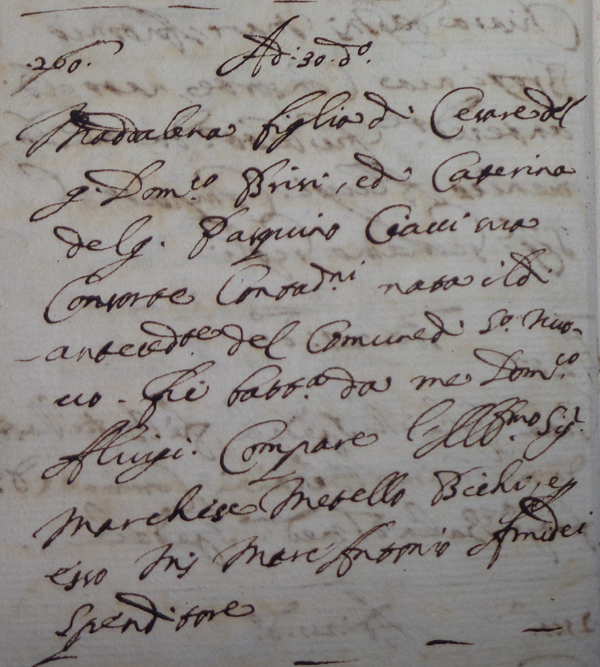 260. Adi: 30. do.
Maddalena figlia di Cesare del
q. Domco Brisi, ed Caterina
del q. Pasquino Ciacci sua
Consorte Contadni nata il dì
antecedte del Comune di So. Nico-
cio. fu batta. da me Domco
Aluigi. Compare l'Illmo Sigr.
Marchise Metello Bichi, e p
esso Ms Marc Antonio Amidei
spenditore